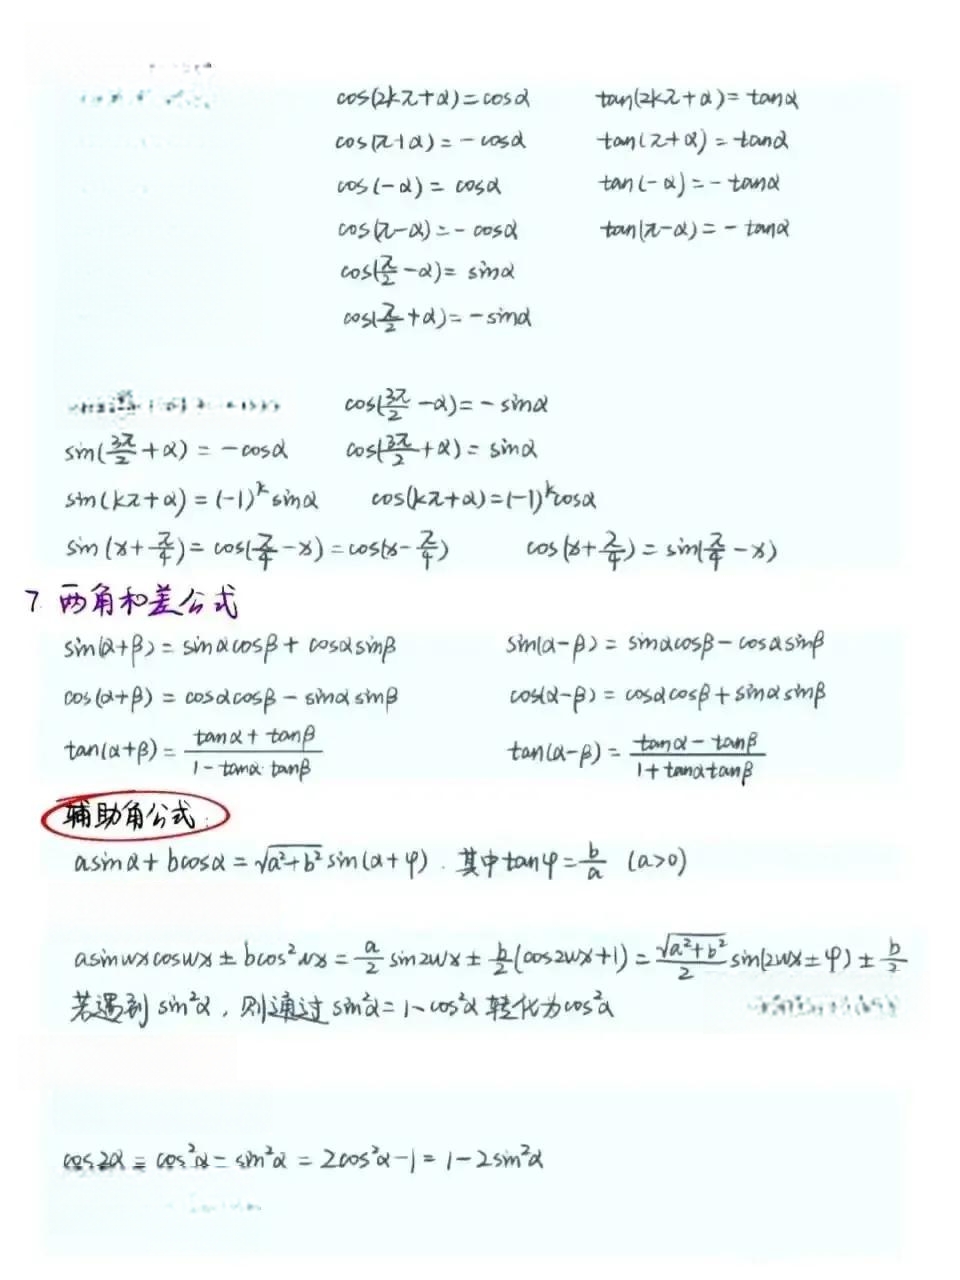 cos(2kπ+α)=cosα tan(2kπ+α)=tanα
cos(π+α)=-cosα tan(π+α)=-tanα
cos(-α)=cosα tan(-α)=-tanα
cos(π-α)=-cosα tan(π-α)=-tanα
cos(π/2-α)=sinα
cos(π/2+α)=-sinα
cos(3π/2-α)=-sinα
sin(3π/2+α)=-cosα cos(3π/2+α)=sinα
sin(kπ+α)=(-1)^k sinα cos(kπ+α)=(-1)^k cosα
sin(x+π/4)=cos(π/4-x)=cos(x-π/4) cos(x+π/4)=sin(π/4-x)
7. 两角和差公式
sin(α+β)=sinαcosβ+cosαsinβ sin(α-β)=sinαcosβ-cosαsinβ
cos(α+β)=cosαcosβ-sinαsinβ cos(α-β)=cosαcosβ+sinαsinβ
tan(α+β)=(tanα+tanβ)/(1-tanα·tanβ) tan(α-β)=(tanα-tanβ)/(1+tanαtanβ)
辅助角公式:
asinα+bcosα=√(a²+b²)sin(α+φ).其中tanφ=b/a (a>0)
asinwxcoswx±bcos²wx=a/2 sin2wx±b/2(cos2wx+1)=√(a²+b²)/2 sin(2wx±φ)±b/2
若遇到sin²α,则通过sin²α=1-cos²α转化为cos²α
cos2α=cos²α-sin²α=2cos²α-1=1-2sin²α